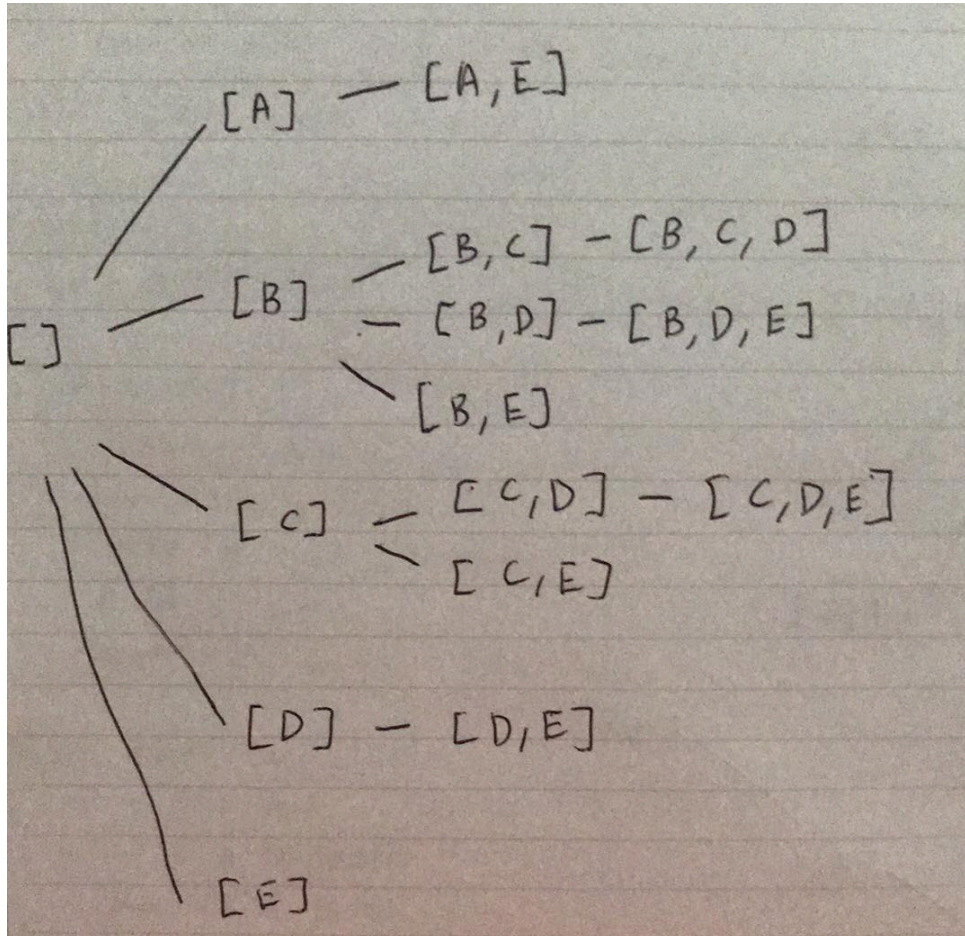 [A] — [A, E]
[B, C] – [B, C, D]
[B] – [B, D] – [B, D, E]
[]
[B, E]
[C] – [C, D] – [C, D, E]
[C, E]
[D] – [D, E]
[E]